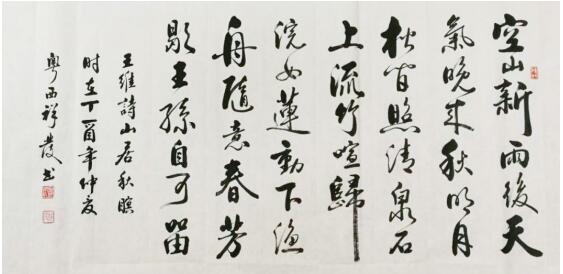 空山新雨後天
氣晚来秋明月
松间照清泉石
上流竹喧歸
浣女蓮動下漁
舟隨意春芳
歇王孫自可留
王维詩山居秋暝
时在丁酉年仲夏
粤西祥發书